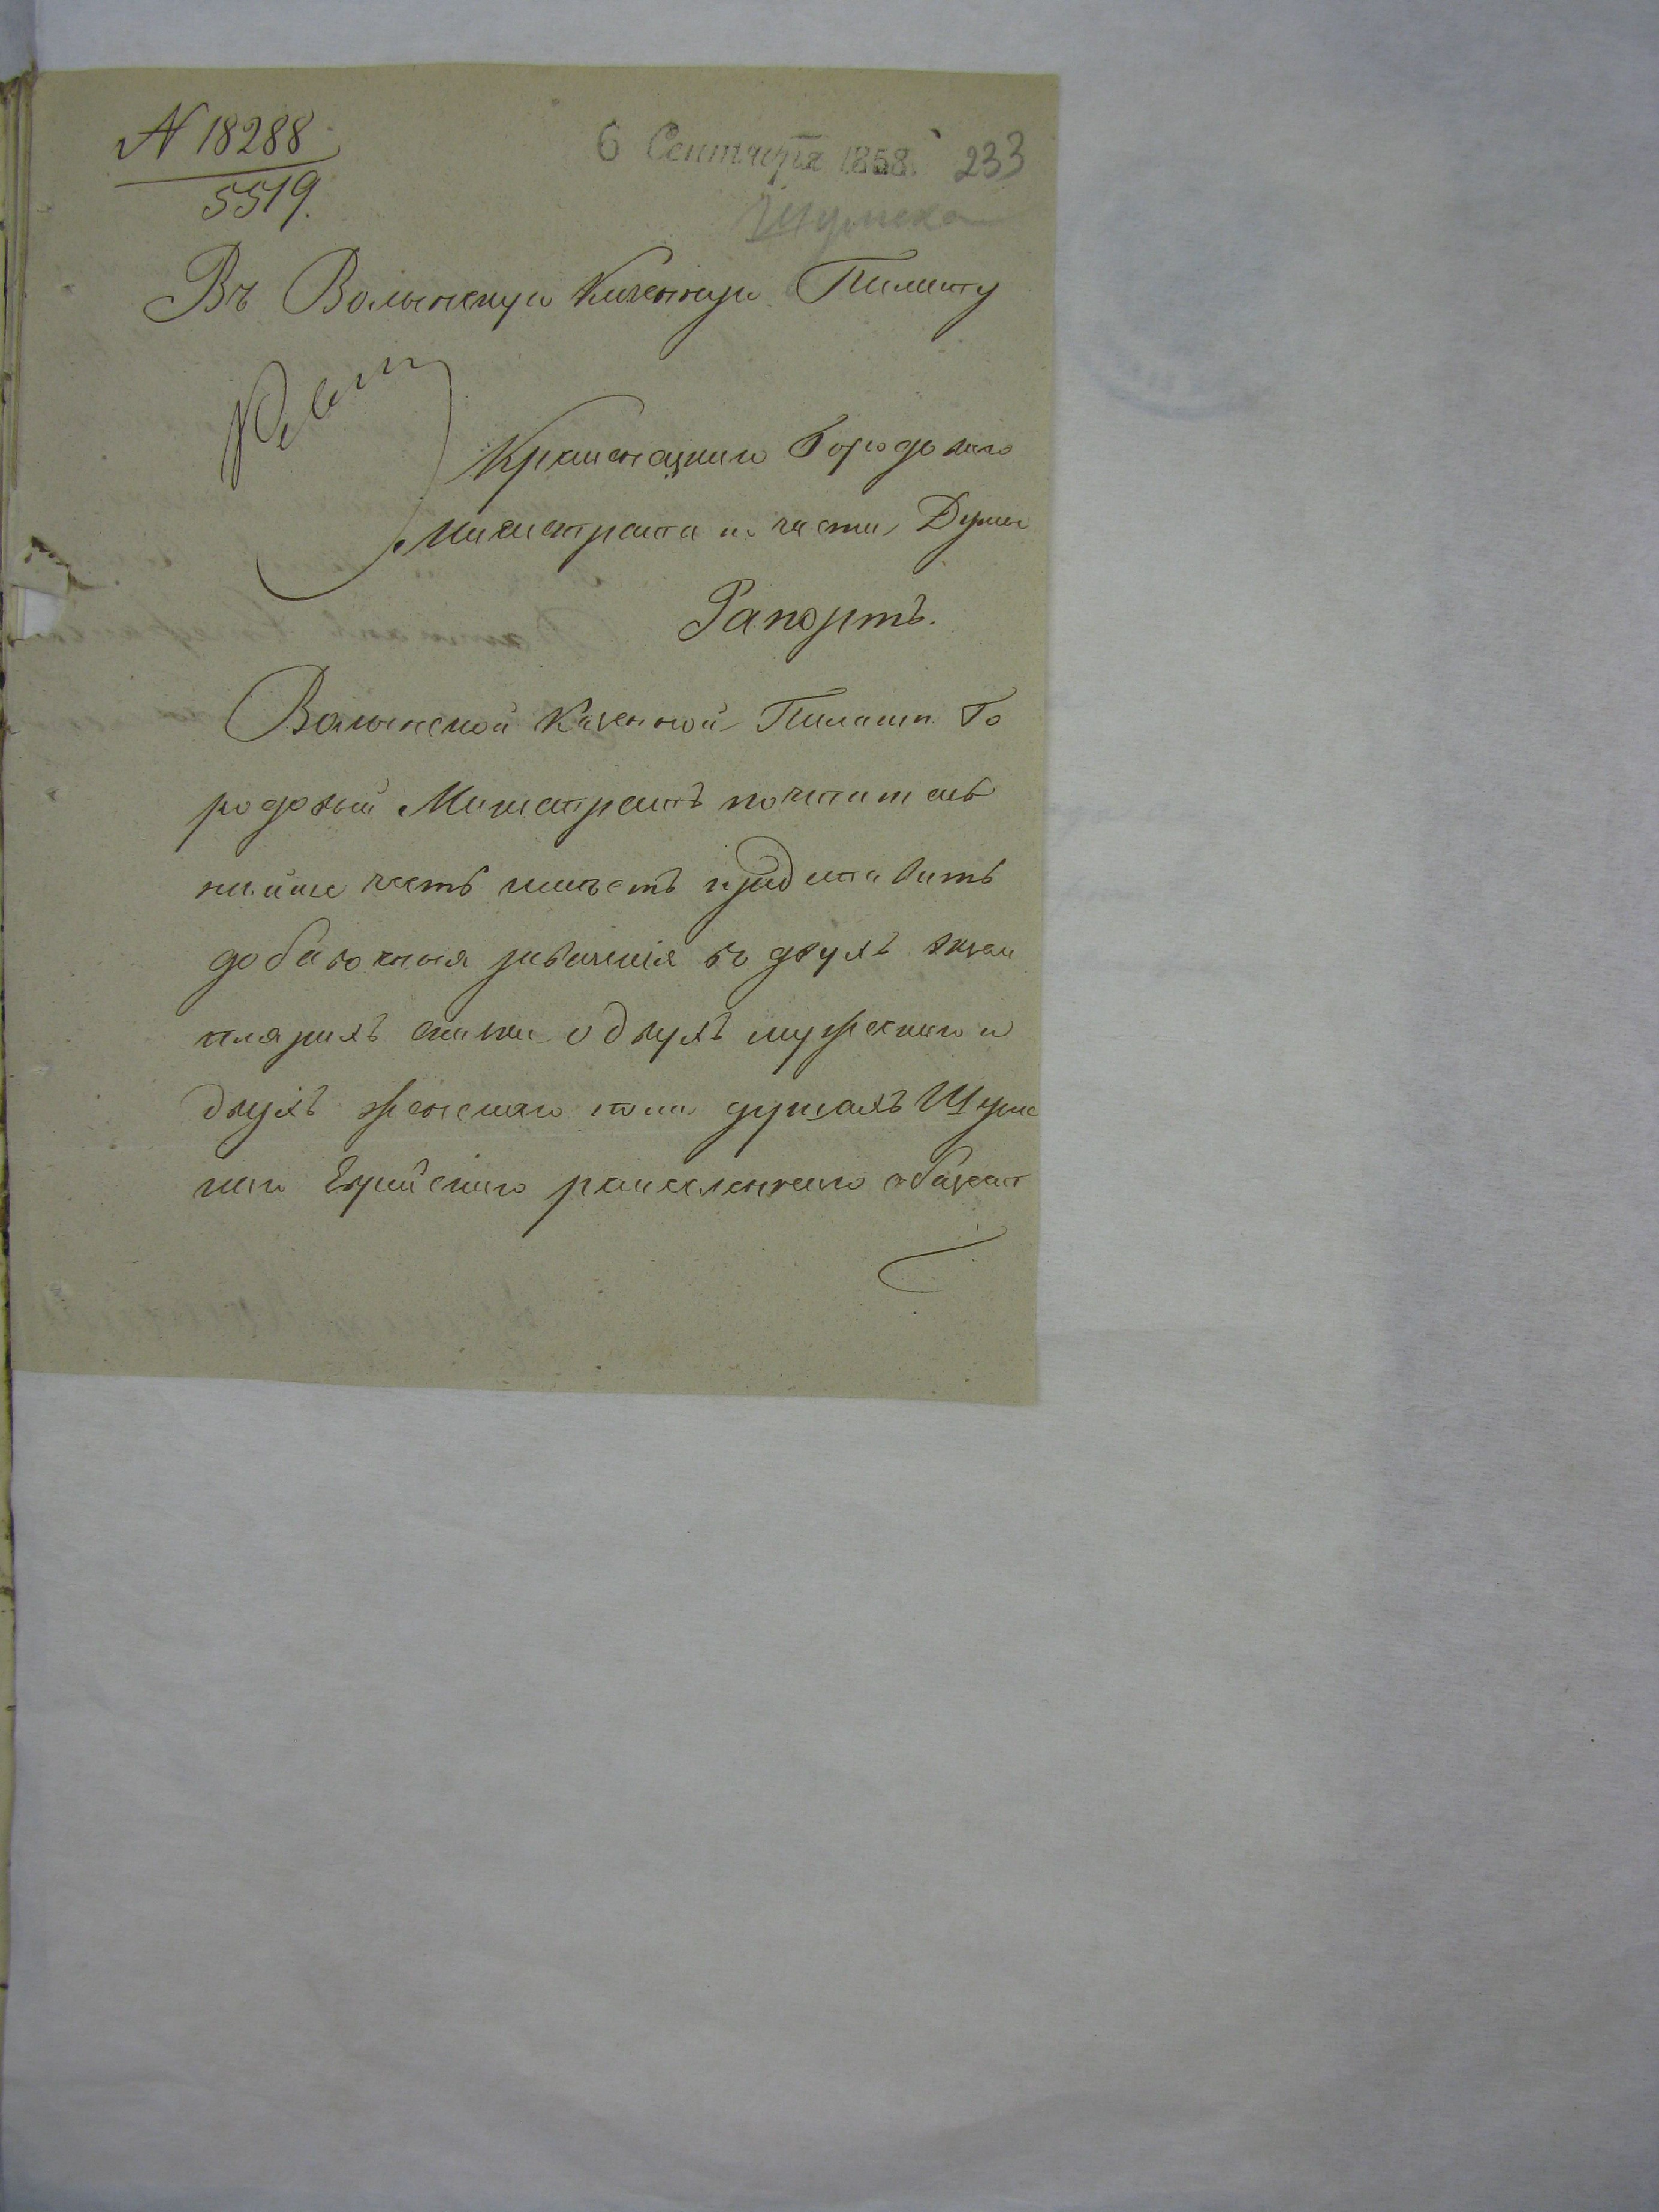 N 18288
5519.
6 Сентября 1858 233
Шумска
Въ Волынскую Казенную Палату
Кременецкаго Городоваго
Магистрата по части Думы
Рапортъ.
Волынской Казенной Палатѣ Го
родовый Магистратъ почтитель
нѣйше честь имѣетъ представить
добавочныя ревизскія въ двухъ экзем
плярахъ сказки о двухъ мужескаго и
двухъ женскаго пола душахъ Шумс
каго Еврейскаго